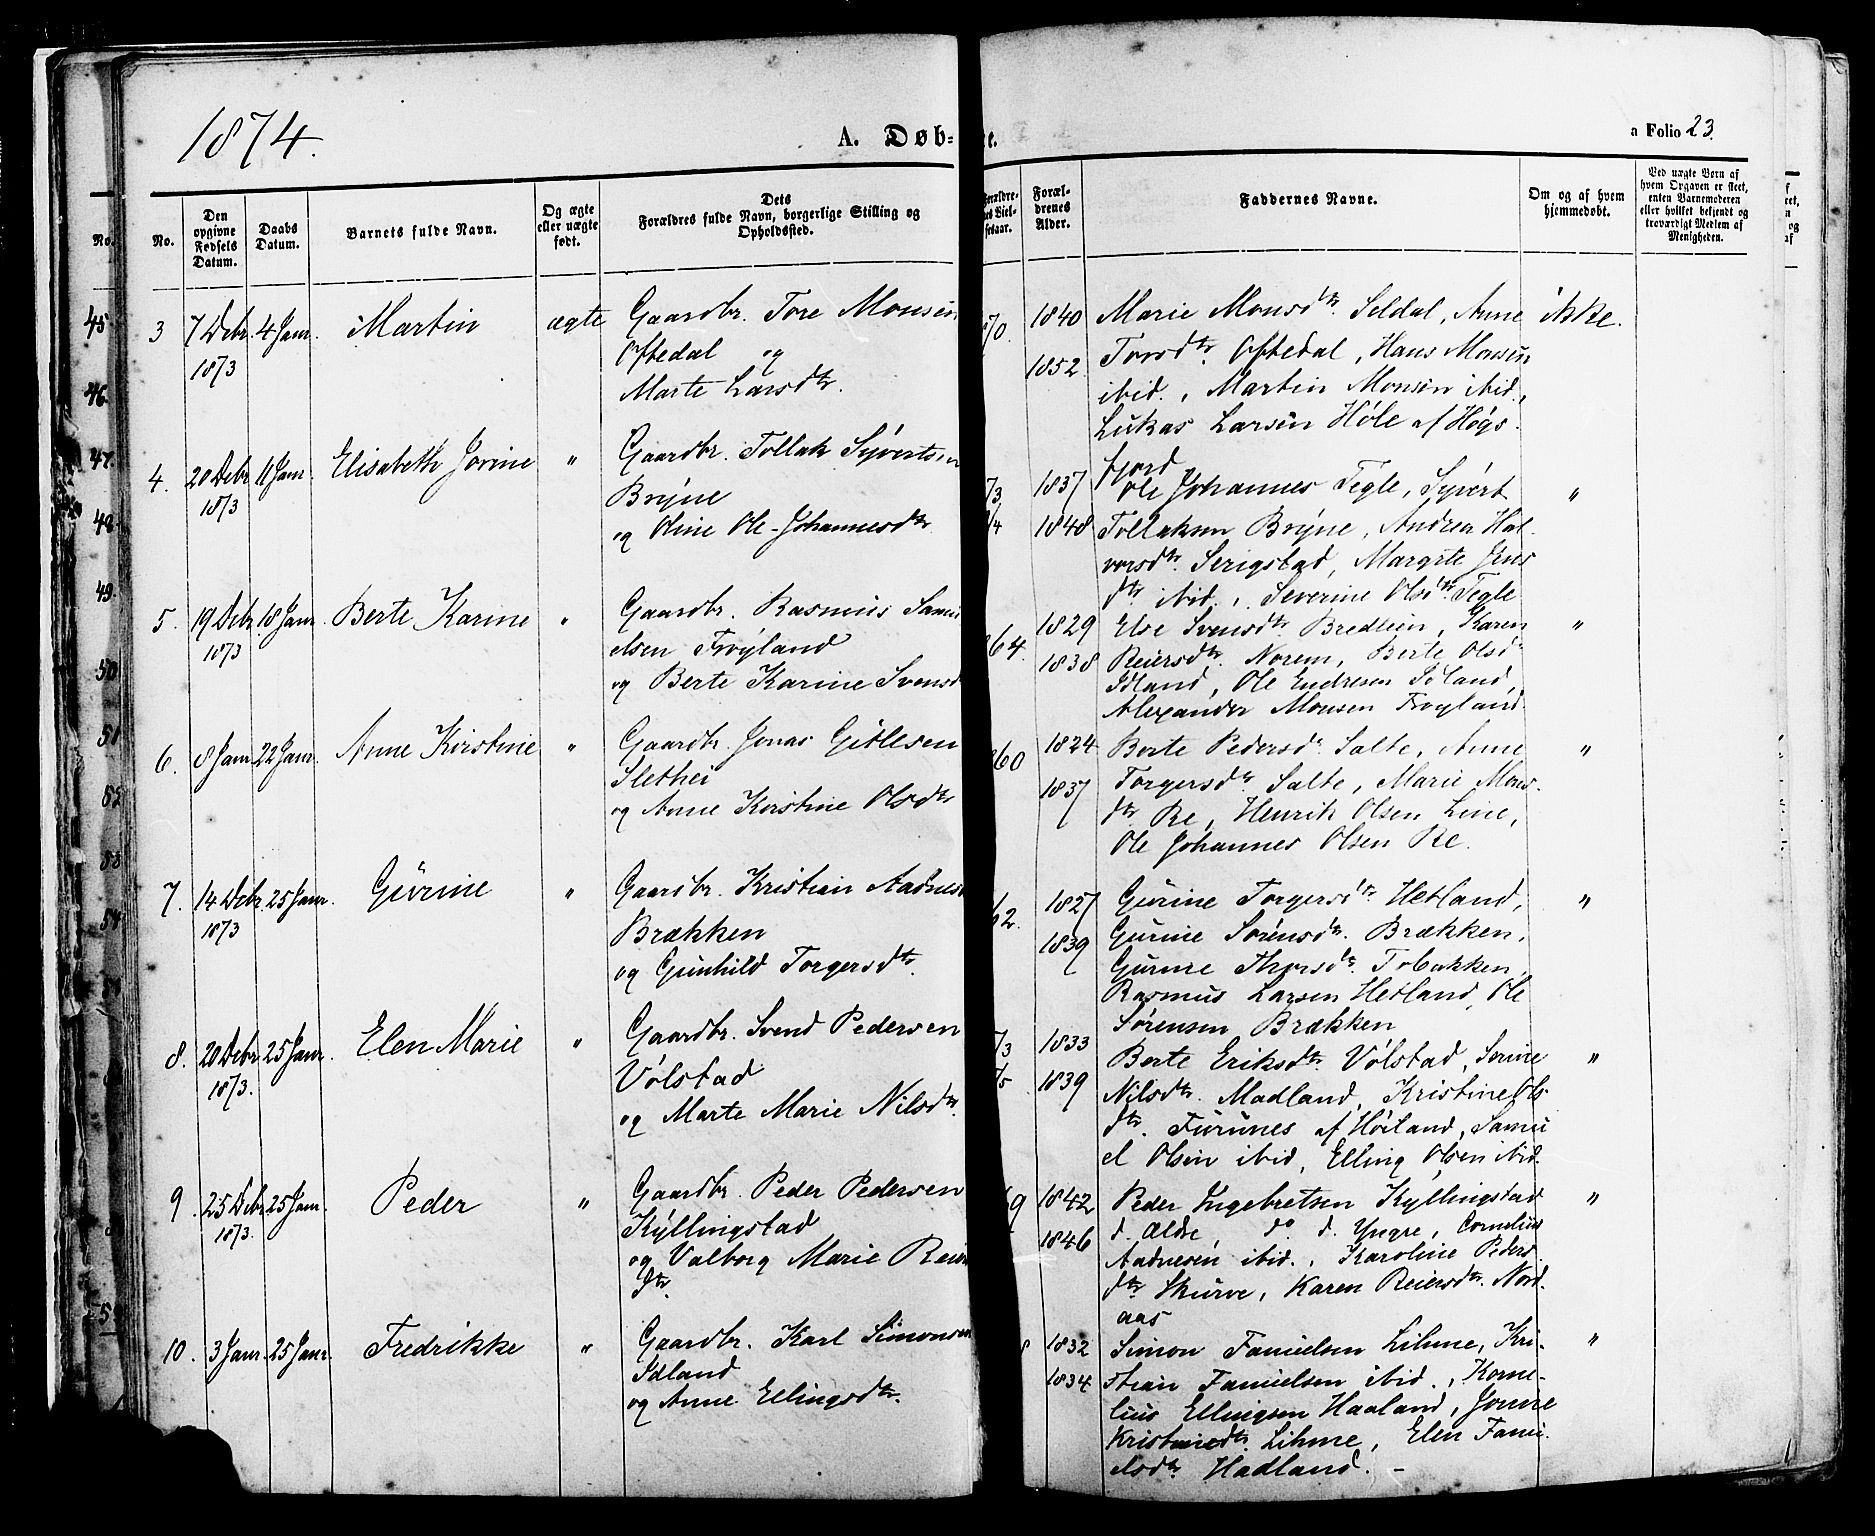 1874.
A. Døb-
te.
a Folio 23.
No.
No.
Den opgivne Fødsels Datum.
Daabs Datum.
Barnets fulde Navn.
Og ægte eller uægte født.
Dets Forældres fulde Navn, borgerlige Stilling og Opholdssted.
Foræl-
drenes
Alder.
Faddernes Navne.
Om og af hvem
hjemmedøbt.
Ved uægte Børn af
hvem Opgaven er skeet,
enten Barnemoderen
eller hvilket bekjendt og
troværdigt Medlem af
Menigheden.
45
46
47
48
49
50
51
52
53
54
3 7 Debr 1873 4 Janr. Martin ægte Gaardbr. Tore Monsen
Oftedal og
Marte Larsdtr.
70. 1840 1852
Marie Monsdtr. Seldal, Anne ikke.
Torsdtr. Oftedal, Hans Monsen
ibid., Martin Monsen ibid.,
Lukas Larsen Høle af Høgs-
fjord
4. 20 Debr 1873 11 Janr. Elisabeth Jorine " Gaardbr. Tollak Syvertsen
Bryne
og Oline Ole-Johannesdtr
73 74 1837 1848
Ole Johannes Tegle, Syvert "
Tollaksen Bryne, Andrea Hal-
vorsdtr. Serigstad, Margrte Jens
dtr. ibid., Severine Olsdtr. Tegle
5. 19 Debr. 1873 18 Janr. Berte Karine " Gaardbr. Rasmus Samu
elsen Frøyland
og Berte Karine Svensd
64. 1829 1838
Else Svensdtr. Bredlein, Karen "
Reiersdtr. Norem, Berte Olsd
Idland, Ole Endresen Idland,
Alexander Monsen Frøyland
6. 8 Janr. 22 Janr. Anne Kirstine " Gaardbr. Jonas Gitlesen
Slethei
og Anne Kirstine Olsdtr
60 1824 1837
Berte Pedersdr Salte, Anne "
Torgersdtr Salte, Marie Mons-
dtr. Re, Henrik Olsen Line,
Ole Johannes Olsen Re.
7. 14 Debr. 1873 25 Janr. Gurine " Gaardbr. Kristian Aadnes
Brækken
og Gunhild Torgersdtr.
62. 1827 1839
Gurine Torgersdtr Hetland, "
Gurine Sørensdtr. Brækken,
Gurine Thorsdtr. Tobakken,
Rasmus Larsen Hetland, Ole
Sørensen Brækken
8. 20 Debr. 1873. 25 Janr. Elen Marie " Gaardbr. Svend Pedersen
Vølstad
og Marte Marie Nilsdtr.
73 75 1833 1839
Berte Eriksdtr. Vølstad, Serine "
Nilsdtr. Madland, Kristine Ols-
dtr. Furunes af Høiland, Samu
el Olsen ibid, Elling Olsen ibid.
9 25 Debr 1873. 25 Janr. Peder " Gaardbr. Peder Pedersen
Kyllingstad
og Valborg Marie Reier
dtr.
69 1842 1846
Peder Ingebretsen Kyllingstad "
d. Ældre, do d. Yngre, Cornelius
Aadnesen ibid., Karoline Peders
dtr. Skurve, Karen Reiersdtr. Nord-
aas
10. 3 Janr. 25 Janr. Fredrikke " Gaardbr. Karl Simonsen
Idland
og Anne Ellingsdtr.
8 1832 1834
Simon Samuelsen Lihme, Kri- "
stian Samuelsen ibid., Korne-
lius Ellingsen Haaland, Jonine
Kristinedtr. Lihme, Elen Samu-
elsdtr. Hadland. -